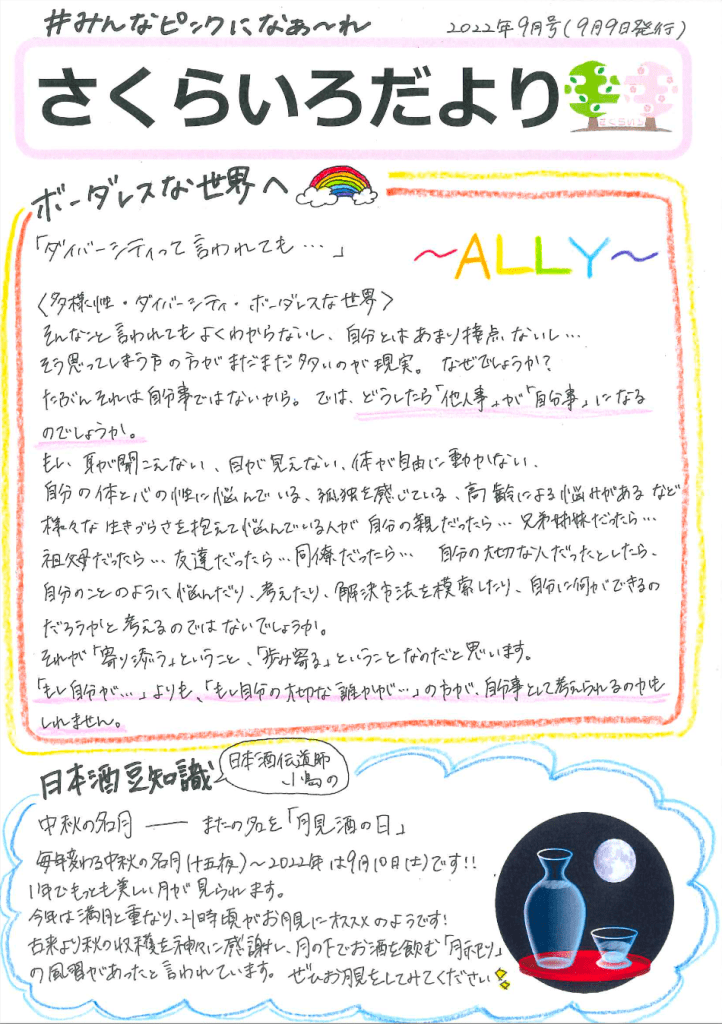 #みんなピンクになぁ〜れ
2022年9月号(9月9日発行)
さくらいろだより
さくらいろ
ボーダレスな世界へ
「ダイバーシティって言われても…」
〜ALLY〜
〈多様性・ダイバーシティ・ボーダレスな世界〉
そんなこと言われてもよくわからないし、自分とはあまり接点ないし…
そう思ってしまう方の方がまだまだ多いのが現実。なぜでしょうか?
たぶんそれは自分事ではないから。では、どうしたら「他人事」が「自分事」になる
のでしょうか。
もし、耳が聞こえない、目が見えない、体が自由に動かない、
自分の体と心の性に悩んでいる、孤独を感じている、高齢による悩みがあるなど
様々な生きづらさを抱えて悩んでいる人が自分の親だったら…兄弟姉妹だったら…
祖父母だったら…友達だったら…同僚だったら… 自分の大切な人だったとしたら、
自分のことのように悩んだり、考えたり、解決方法を模索したり、自分に何ができるの
だろうかと考えるのではないでしょうか。
それが「寄り添う」ということ、「歩み寄る」ということなのだと思います。
「もし自分が…」よりも、「もし自分の大切な誰かが…」の方が、自分事として考えられるのかも
しれません。
日本酒豆知識
日本酒伝道師
小鳥の
中秋の名月 ― またの名を「月見酒の日」
毎年変わる中秋の名月(十五夜)〜2022年は9月10日(土)です!!
1年でもっとも美しい月が見られます。
今年は満月と重なり、21時頃がお月見にオススメのようです!
古来より秋の収穫を神々に感謝し、月の下でお酒を飲む「月祭り」
の風習があったと言われています。ぜひお月見をしてみてください